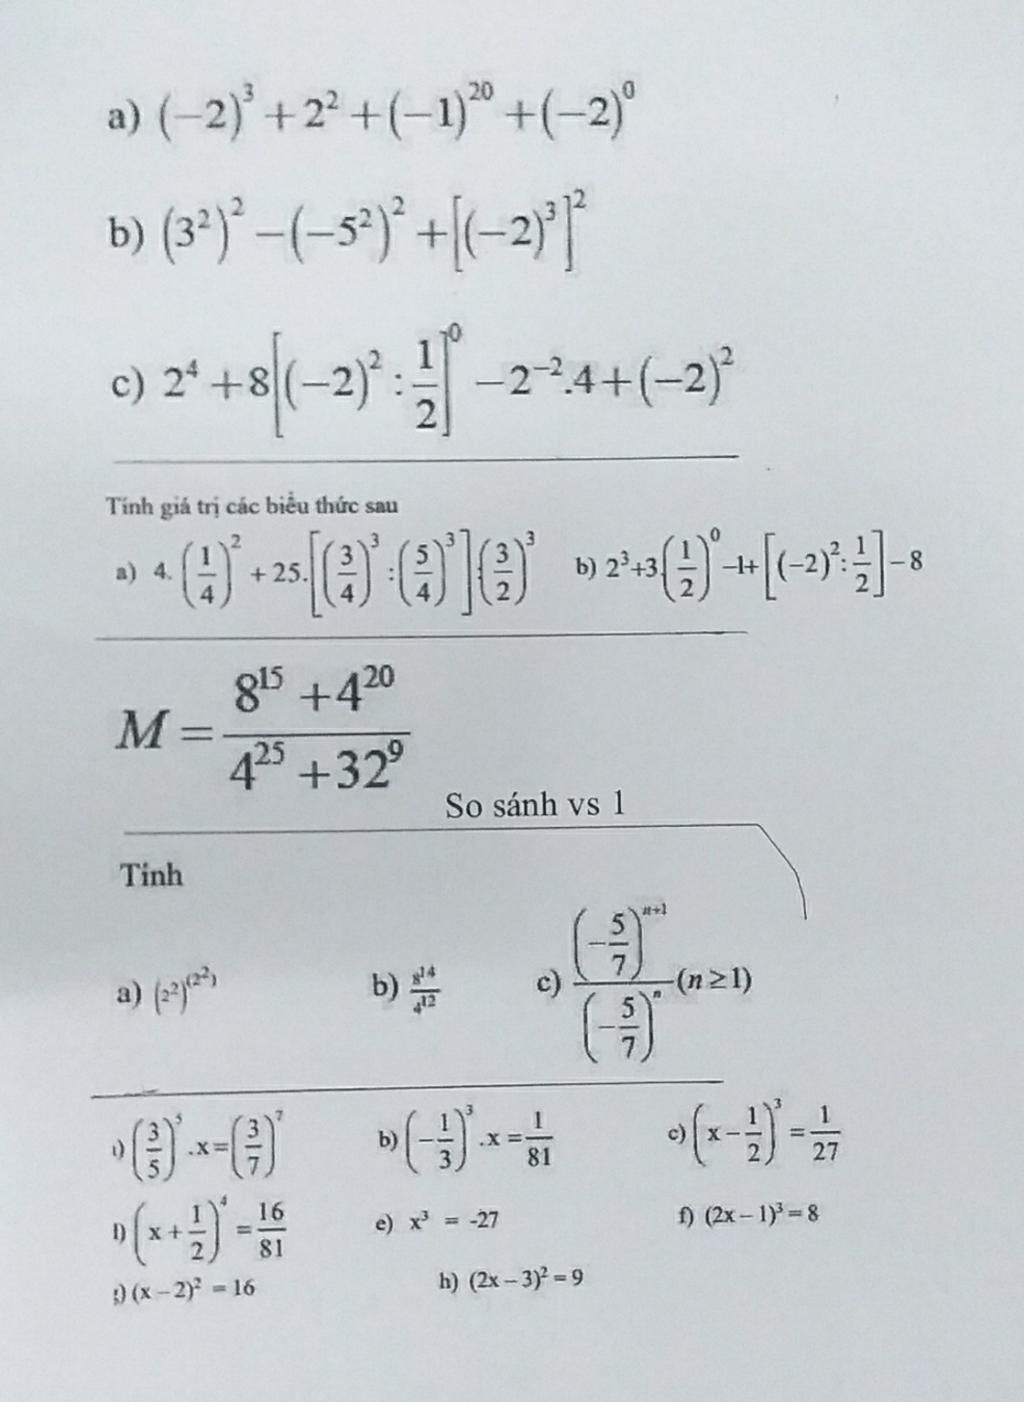 a) (−2)³ + 2² + (−1)²⁰ + (−2)⁰
b) (3²)² − (−5²)² + [(−2)³]²
c) 2⁴ + 8[(−2)² : 1/2]⁰ − 2⁻².4 + (−2)²
Tính giá trị các biểu thức sau
a) 4.(1/4)² + 25.[(3/4)³ : (5/4)³] : (3/2)³ b) 2³+3.(1/2)⁰ −1+ [(−2)² : 1/2] − 8
M = (8¹⁵ + 4²⁰)/(4²⁵ + 32⁹)
So sánh vs 1
Tính
a) (2²)^(2²) b) 8¹⁴/4¹² c) (−5/7)ⁿ⁺¹/(−5/7)ⁿ (n ≥ 1)
(3/5)⁵ .x = (3/7)⁷ b) (−1/3)³ .x = 1/81 c) (x − 1/2)³ = 1/27
(x + 1/2)⁴ = 16/81 e) x³ = -27 f) (2x − 1)³ = 8
(x − 2)² = 16 h) (2x − 3)² = 9